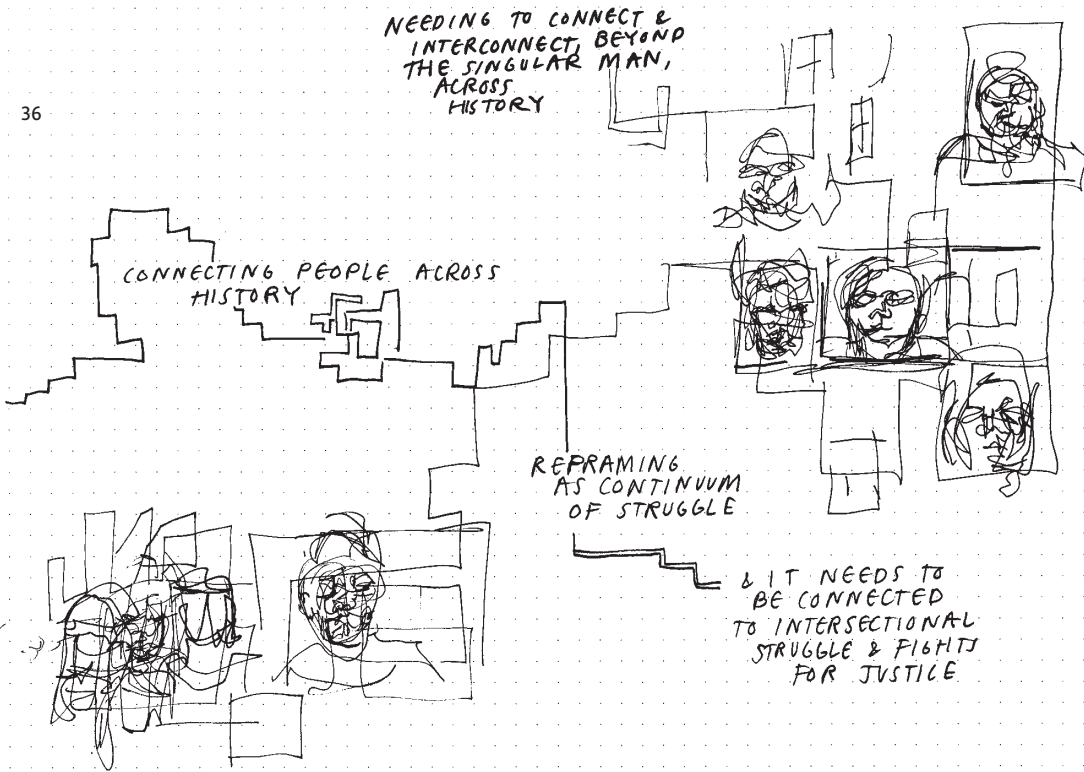 NEEDING TO CONNECT &
INTERCONNECT, BEYOND
THE SINGULAR MAN,
ACROSS
HISTORY
36
CONNECTING PEOPLE ACROSS
HISTORY
REFRAMING
AS CONTINUUM
OF STRUGGLE
& IT NEEDS TO
BE CONNECTED
TO INTERSECTIONAL
STRUGGLE & FIGHTS
FOR JUSTICE